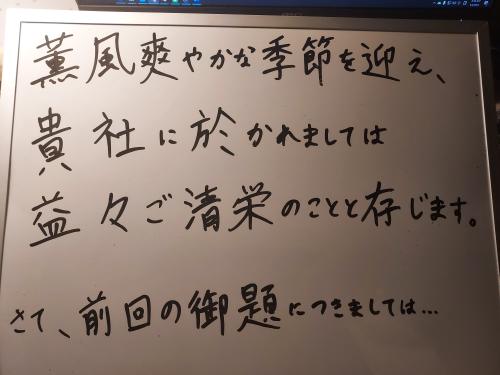 薫風爽やかな季節を迎え、
貴社に於かれましては
益々ご清栄のことと存じます。
さて、前回の御題につきましては…